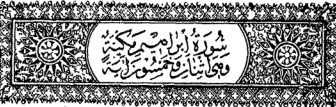 سورة إبراهيم مكية
وهي اثنان وخمسون آية